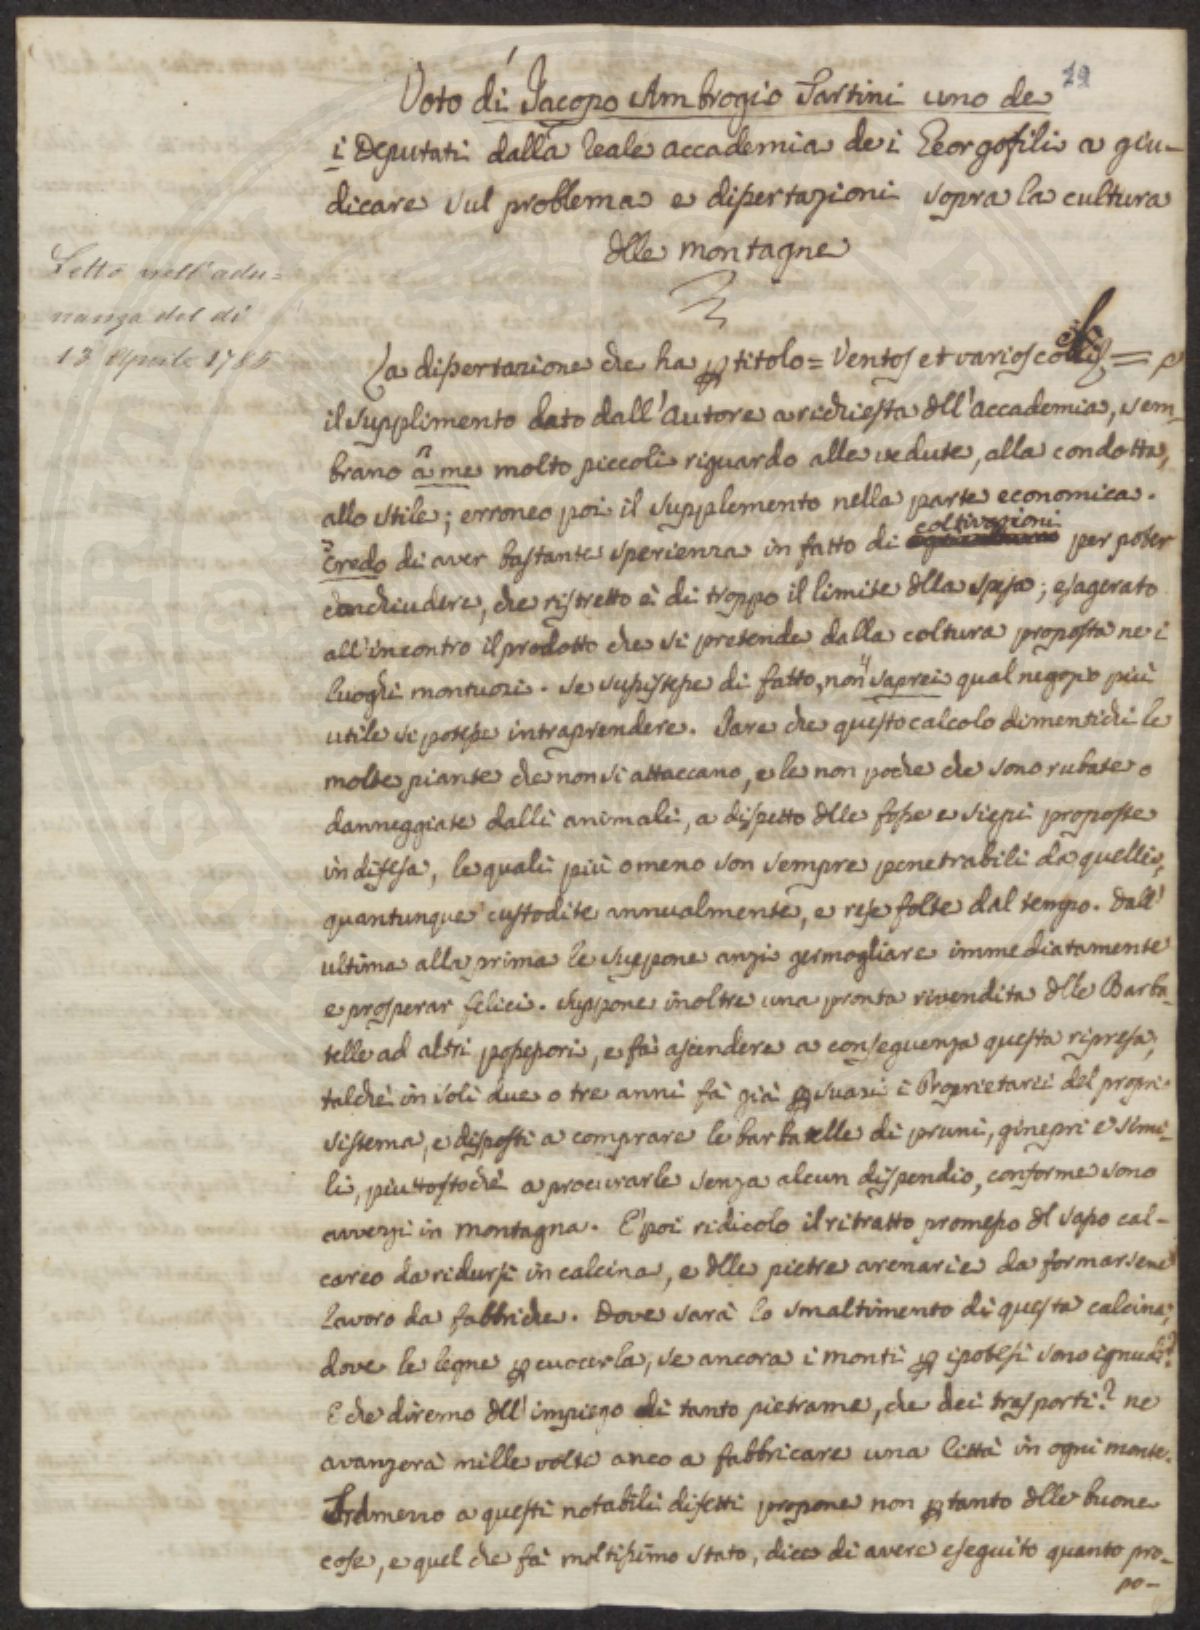 29
Voto di Jacopo Ambrogio Tartini uno de
i Deputati dalla Reale accademia dei Georgofili a giu-
dicare sul problema e dissertazioni sopra la cultura
dlle montagne
Letto nell'adu-
nanza del dì
13 Aprile 1785
La dissertazione che ha p titolo = Ventos et varios =
il supplimento dato dall'Autore a richiesta dll'Accademia, sem-
brano a me molto piccoli riguardo alle vedute, alla condotta,
allo stile; erroneo poi il supplemento nella parte economica.
Credo di aver bastante sperienza in fatto di coltivazioni per poter
conchiudere, che ristretto è di troppo il limite dlla spesa; esagerato
all'incontro il prodotto che si pretende dalla coltura proposta ne i
luoghi montuosi. Se sussistesse di fatto, non saprei qual negozio più
utile si potesse intraprendere. Pare che questo calcolo dimentichi le
molte piante che non si attaccano, e le non poche che sono rubate o
danneggiate dalli animali, a dispetto dlle fosse e siepi proposte
in difesa, le quali più o meno son sempre penetrabili da quelli,
quantunque custodite annualmente, e rese folte dal tempo. Dall'
ultima alla prima le suppone anzi germogliare immediatamente
e prosperar felici. Suppone inoltre una pronta rivendita dlle Barba-
telle ad altri possessori, e fà ascendere a conseguenza questa ripresa,
talchè in soli due o tre anni fà già psuasi i Proprietarii del propri
sistema, e disposti a comprare le barbatelle di pruni, ginepri e simi-
li, piuttostochè a procurarle senza alcun dispendio, conforme sono
avvezzi in montagna. E' poi ridicolo il ritratto promesso dl sasso cal-
careo da ridursi in calcina, e dlle pietre arenarie da formarsene
lavoro da fabbriche. Dove sarà lo smaltimento di questa calcina,
dove le legne p cuocerla, se ancora i monti p ipotesi sono ignudi?
E che diremo dll'impiego di tanto pietrame, che dei trasporti? ne
avanzerà mille volte anco a fabbricare una Città in ogni monte.
Framezzo a questi notabili difetti propone non ptanto dlle buone
cose, e quel che fà moltissimo stato, dice di avere eseguito quanto pro-
po-